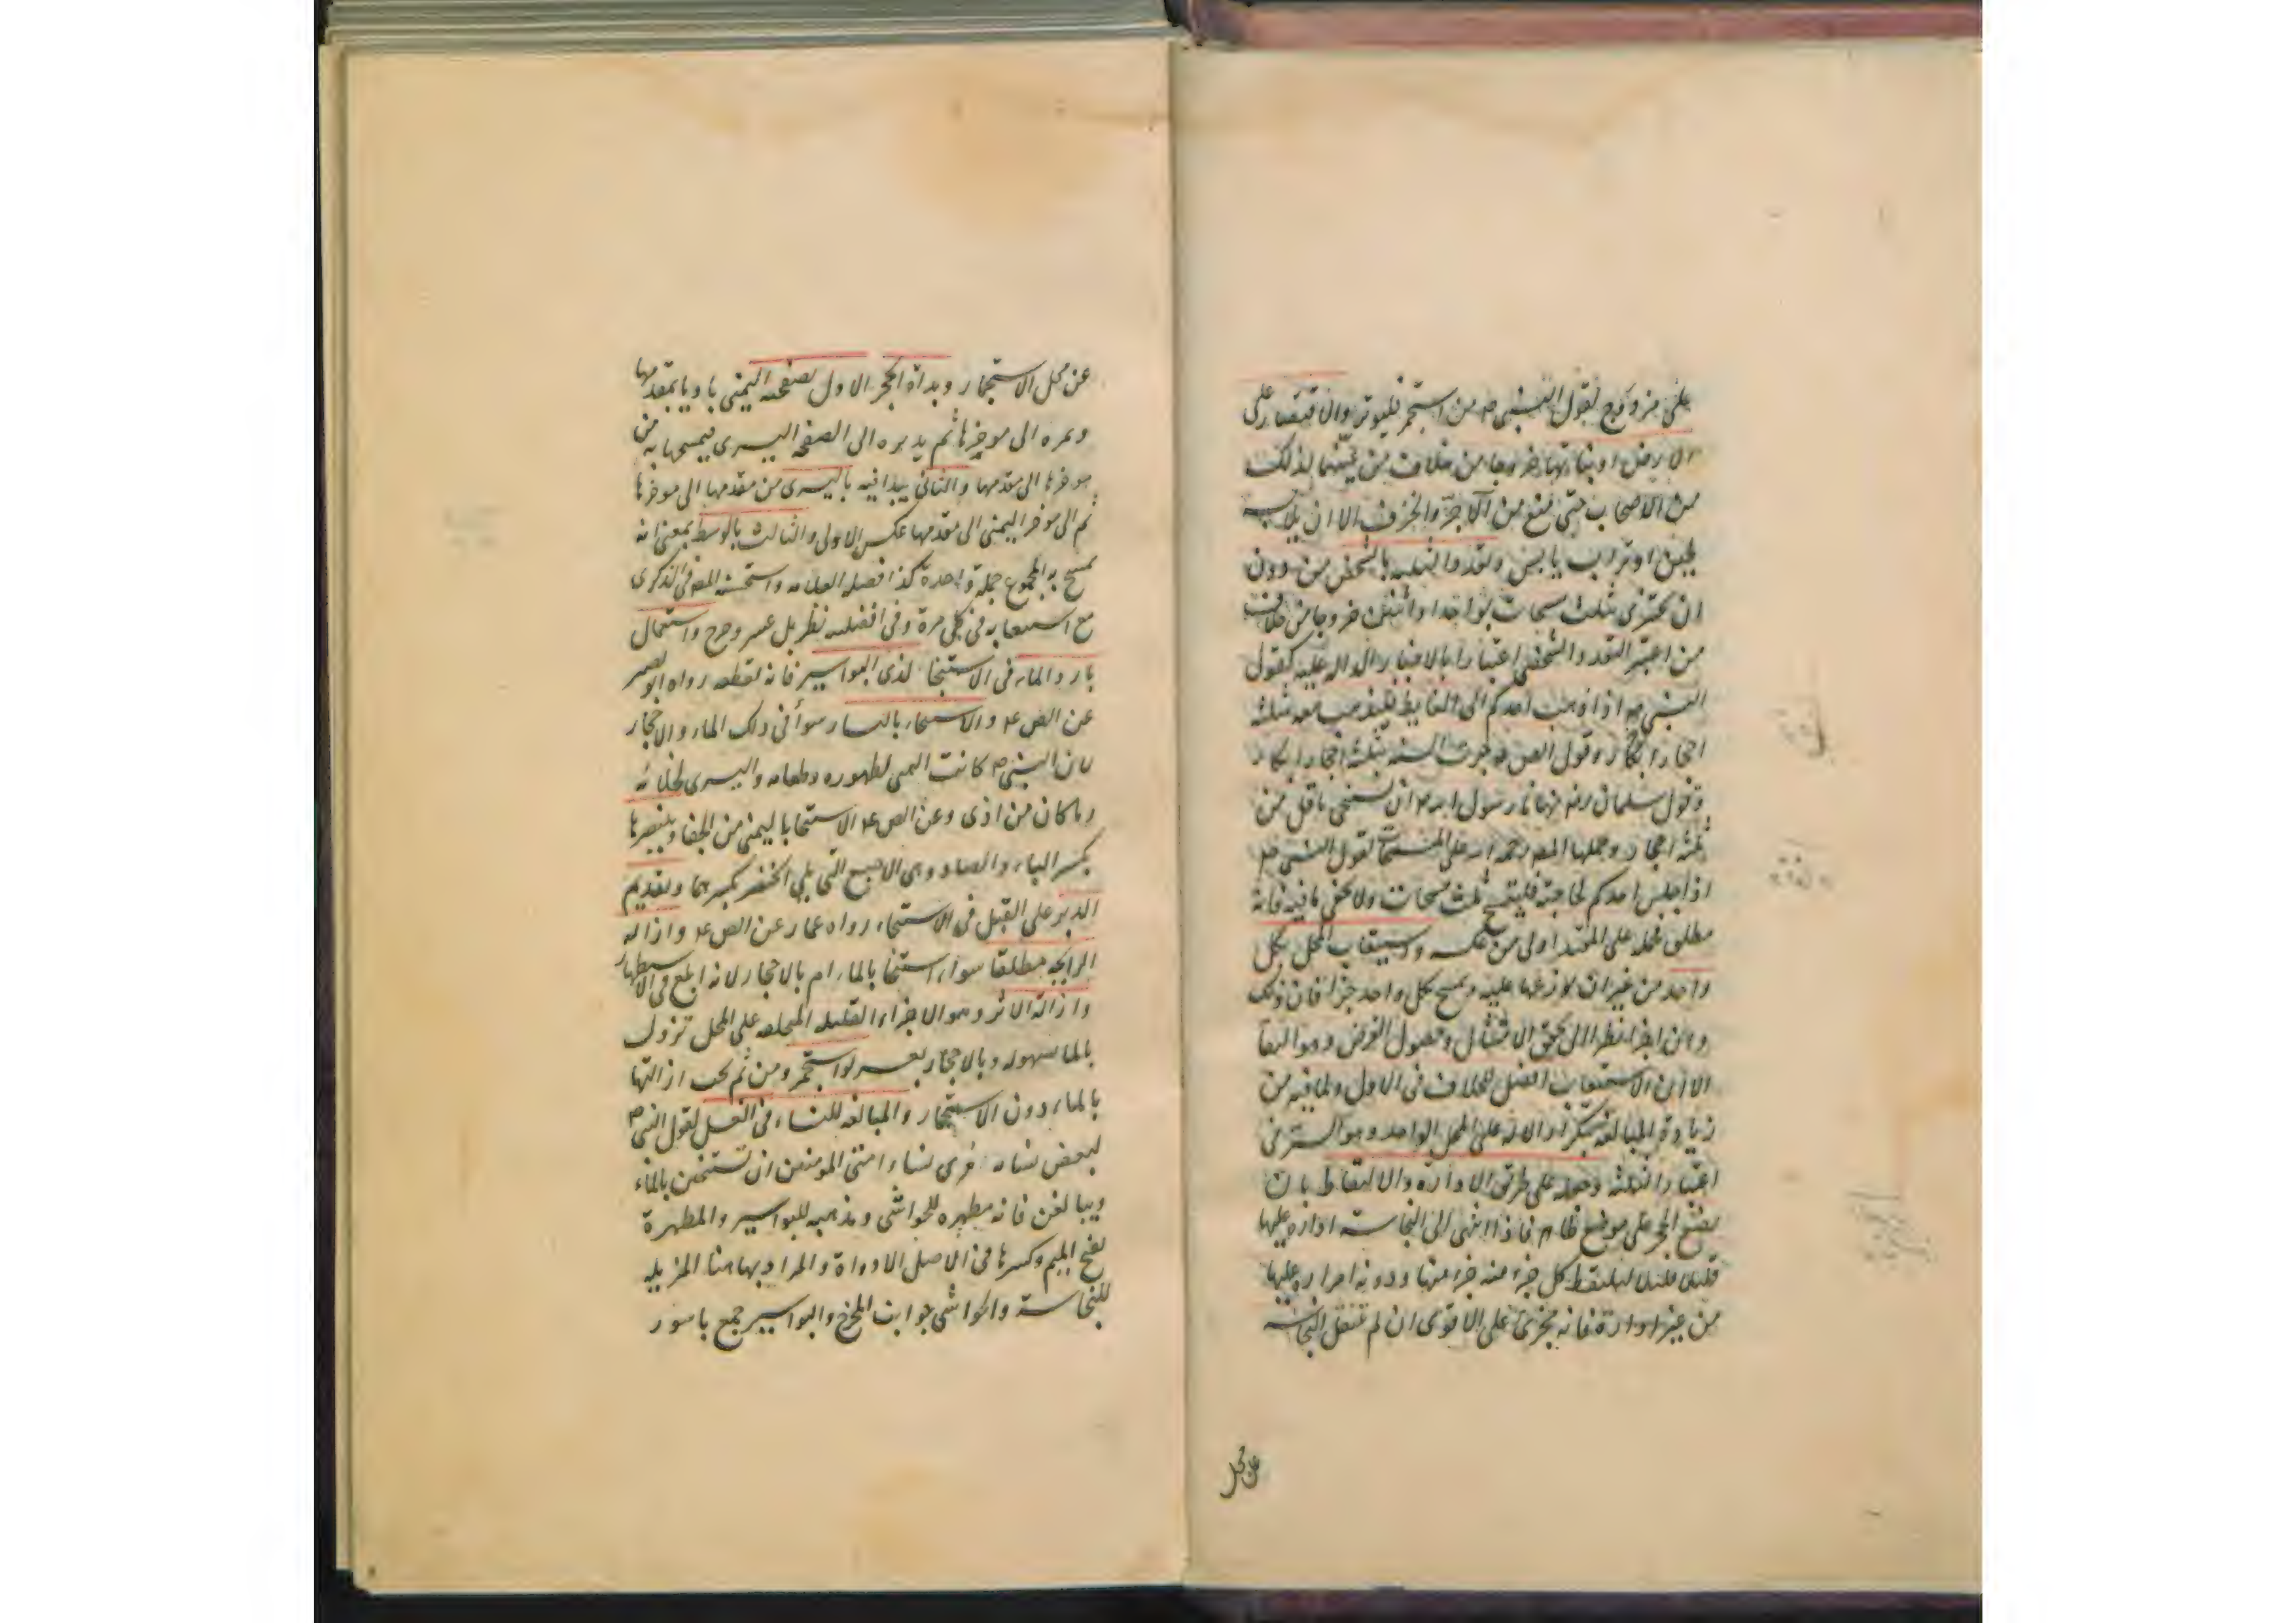 على مزدوج لقول النبي ص من استجمر فليوتر والاقتصار على
الارض او نباتها خروجا من خلاف من عينهما لذلك
من الاصحاب حتى منع من الآجر والخزف الا ان يلابسه
طين او تراب يابس وتعدد الثلثة بالشخص من دون
ان يجتزى بثلث مسحات بواحد او اثنين خروجا من خلاف
من اعتبر التعدد الشخصى اعتبارا بالاخبار الدالة عليه كقول
النبي ص اذا ذهب احدكم الى الغايط فليذهب معه بثلثة
احجار ابكار وقول الص ع جرت السنة بثلثة احجار ابكار
وقول سلمان رض نهانا رسول الله ص ان نستنجى باقل من
ثلثة احجار وحملها المص رحمه الله على المسحات لقول النبي ص
اذا جلس احدكم لحاجته فليتمسح ثلث مسحات ولا يخفى ما فيه فانه
مطلق فحمله على المقيد اولى من عكسه واستيعاب المحل بكل
واحد من غير ان يوزعها عليه ويمسح بكل واحد جزءا فان ذلك
وان اجزأ نظرا الى تحقق الامتثال وحصول الغرض وهو النقا
الا ان الاستيعاب افضل للخلاف فى الاول ولما فيه من
زيادة المبالغة بتكراد الالة على المحل الواحد وهو السر فى
اعتبار الثلثة وحمله على طريق الادارة والالتقاط بان
يضع الحجر على موضع طاهر فاذا انتهى الى النجاسة اداره عليها
قليلا قليلا ليلتقط كل جزء منه جزء منها ودونه امراره عليها
من غير ادارة فانه يجزى على الاقوى ان لم تنتقل النجاسة
عن محل
عن محل الاستجمار وبداة الحجر الاول بصفحه اليمنى باديا بمقدمها
ويمره الى موخرها ثم يديره الى الصفحه اليسرى فيمسحها به من
موخرها الى مقدمها والثانى يبدا فيه باليسرى من مقدمها الى موخرها
ثم الى موخر اليمنى الى مقدمها عكس الاول والثالث بالوسط بمعنى انه
يمسح به المجموع جملة واحدة كذا فصله العلامه واستحسنه المص فى الذكرى
مع استيعابه فى كل مرة وفى افضليته نظر بل عسر وحرج واستعمال
بارد الماء فى الاستنجا لذى البواسير فانه يقطعه رواه ابو بصير
عن الص ع والاستنجاء باليسار سواء فى ذلك الماء والاحجار
لان النبي ص كانت اليمنى لطهوره وطعامه واليسرى لخلائه
وما كان من اذى وعن الص ع الاستنجا باليمنى من الجفا وببنصرها
بكسر الباء والصاد وهى الاصبع التى يلى الخنصر بكسرهما وتقديم
الدبر على القبل فى الاستنجاء رواه عمار عن الص ع وازاله
الرايحه مطلقا سواء استنجا بالماء ام بالاحجار لانه ابلغ فى الاستظهار
وازالة الاثر وهو الاجزاء القليله المتخلفه على المحل تزول
بالماء بسهوله وبالاحجار بعسر لو استجمر ومن ثم يجب ازالتها
بالماء دون الاستجمار والمبالغه للنساء فى الغسل لقول النبي ص
لبعض نسائه مرى نساء امتى المومنين ان تستنجين بالماء
ويبالغن فانه مطهره للحواشى ومذهبه للبواسير والمطهرة
بفتح الميم وكسرها فى الاصل الاداوة والمراد بها هنا المزيله
للنجاسة والحواشى جوانب المخرج والبواسير جمع باسور